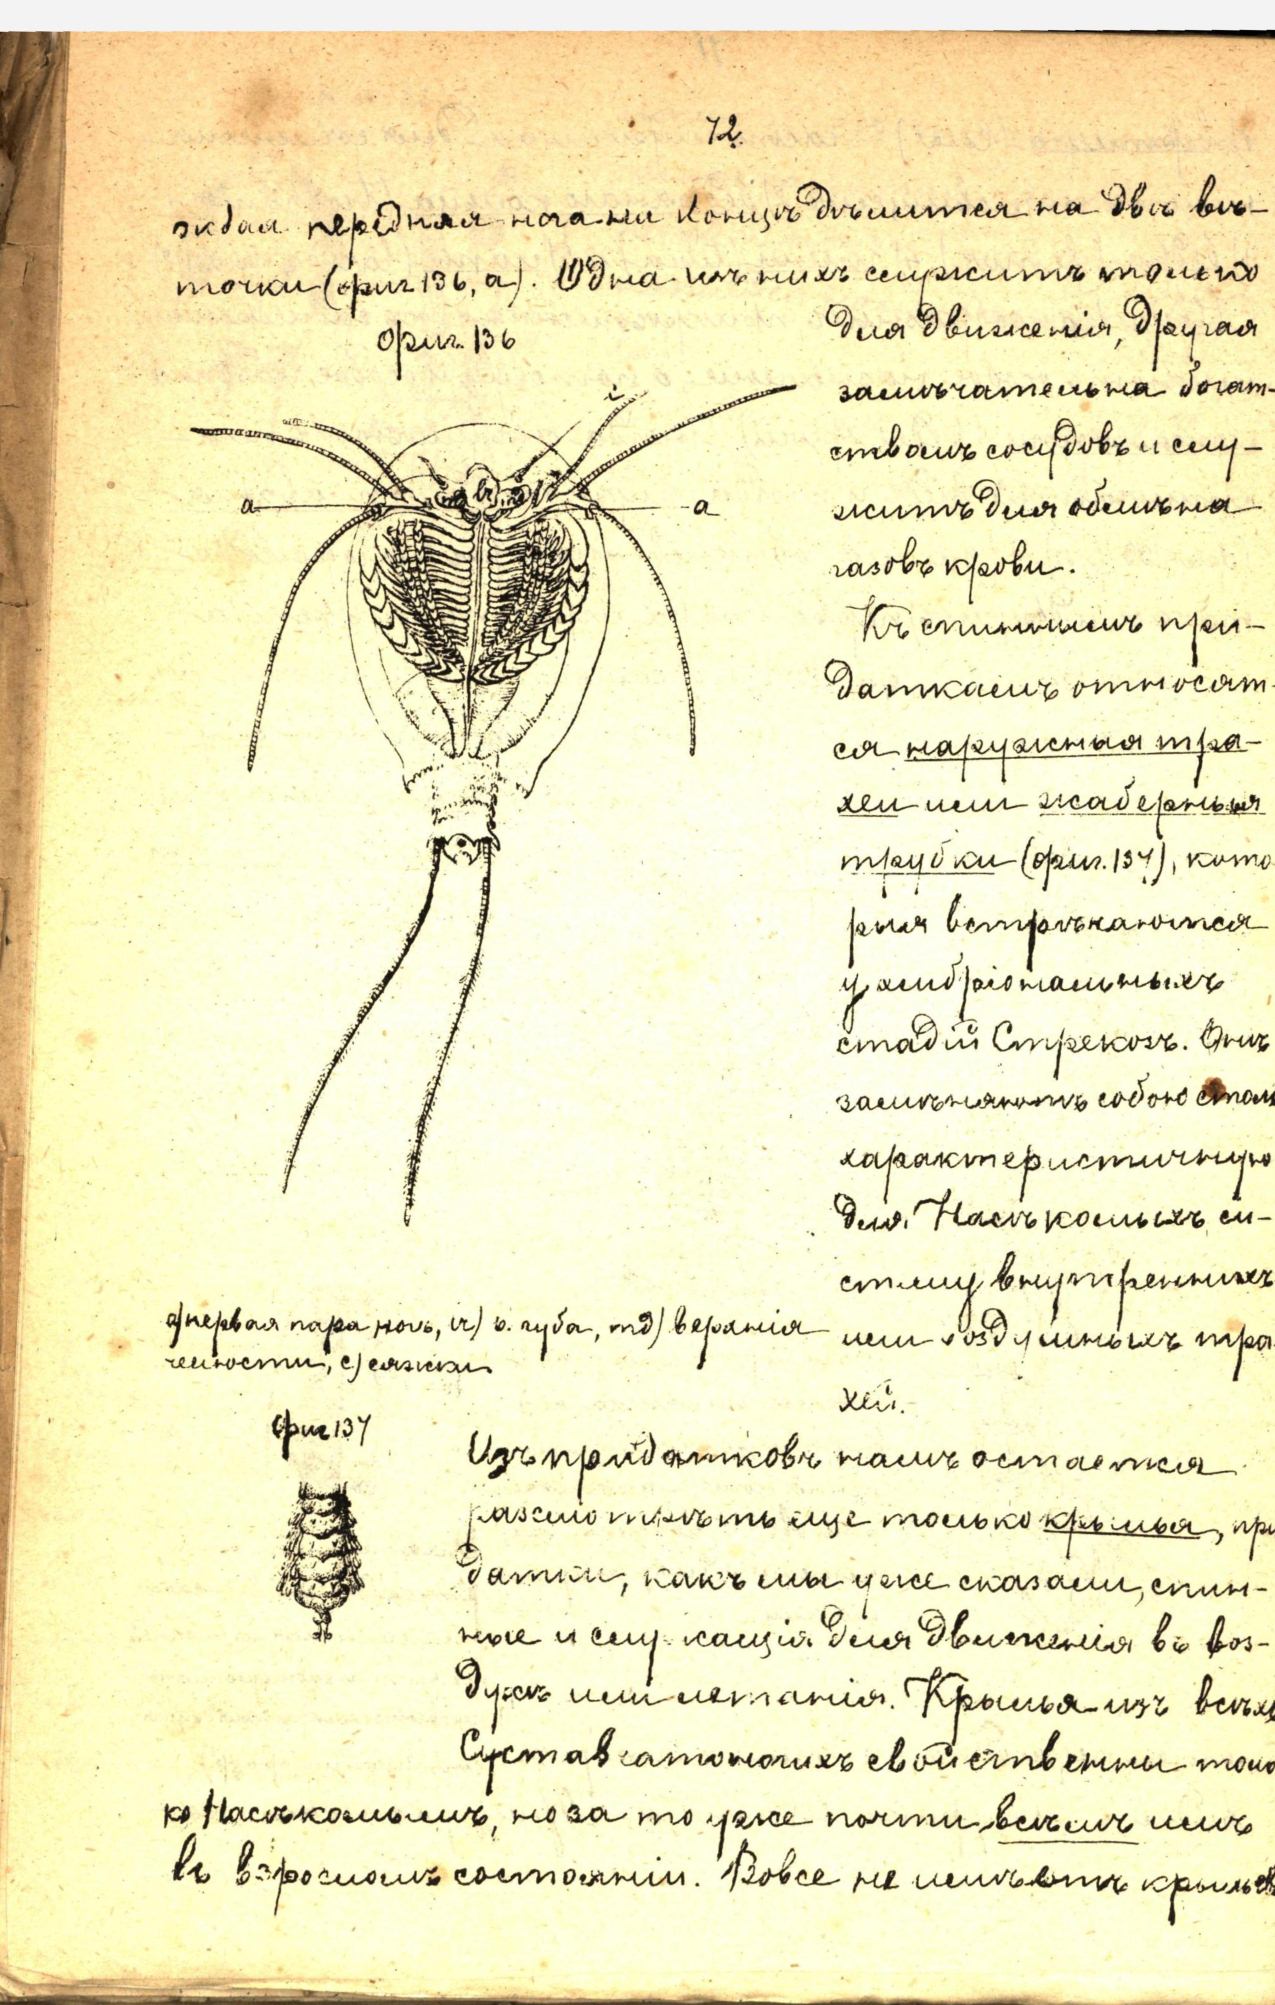 72.
ждая передняя нога на концѣ дѣлится на двѣ вѣ-
точки (фиг. 136, а). Одна изъ нихъ служитъ только
фиг. 136
для движенія, другая
замѣчательна богат-
ствомъ сосудовъ и слу-
житъ для обмѣна
газовъ крови.
Къ спиннымъ при-
даткамъ относят-
ся наружныя тра-
хеи или жаберныя
трубки (фиг. 137), кото
рыя встрѣчаются
у эмбріональныхъ
стадій Стрекозъ. Онѣ
замѣняютъ собою столь
характеристичную
для Насѣкомыхъ си-
стему внутреннихъ
или воздушныхъ тра
хей.
a
a
i
а) первая пара ногъ, в. губа, md) верхнія
челюсти, с) сяжки
фиг 137
Изъ придатковъ намъ остается
разсмотрѣть еще только крылья, при
датки, какъ мы уже сказали, спин-
ные и служащія для движенія въ воз-
духѣ или летанія. Крылья изъ всѣхъ
Суставчатоногихъ свойственны толь
ко Насѣкомымъ, но за то уже почти всѣмъ имъ
въ взросломъ состояніи. Вовсе не имѣютъ крыльевъ